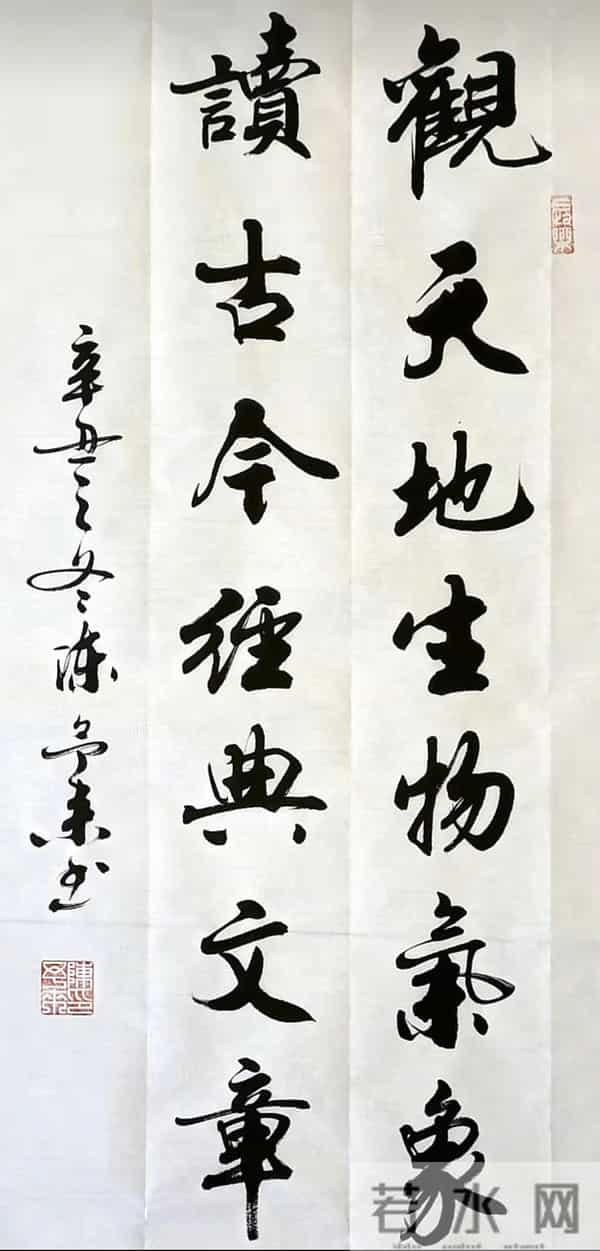 觀天地生物氣象
讀古今經典文章
辛丑之冬陳書
若水网